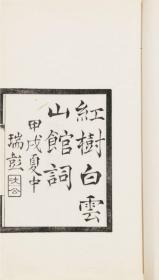 紅樹白雲
山館詞
甲戌夏中
瑞彭
次公